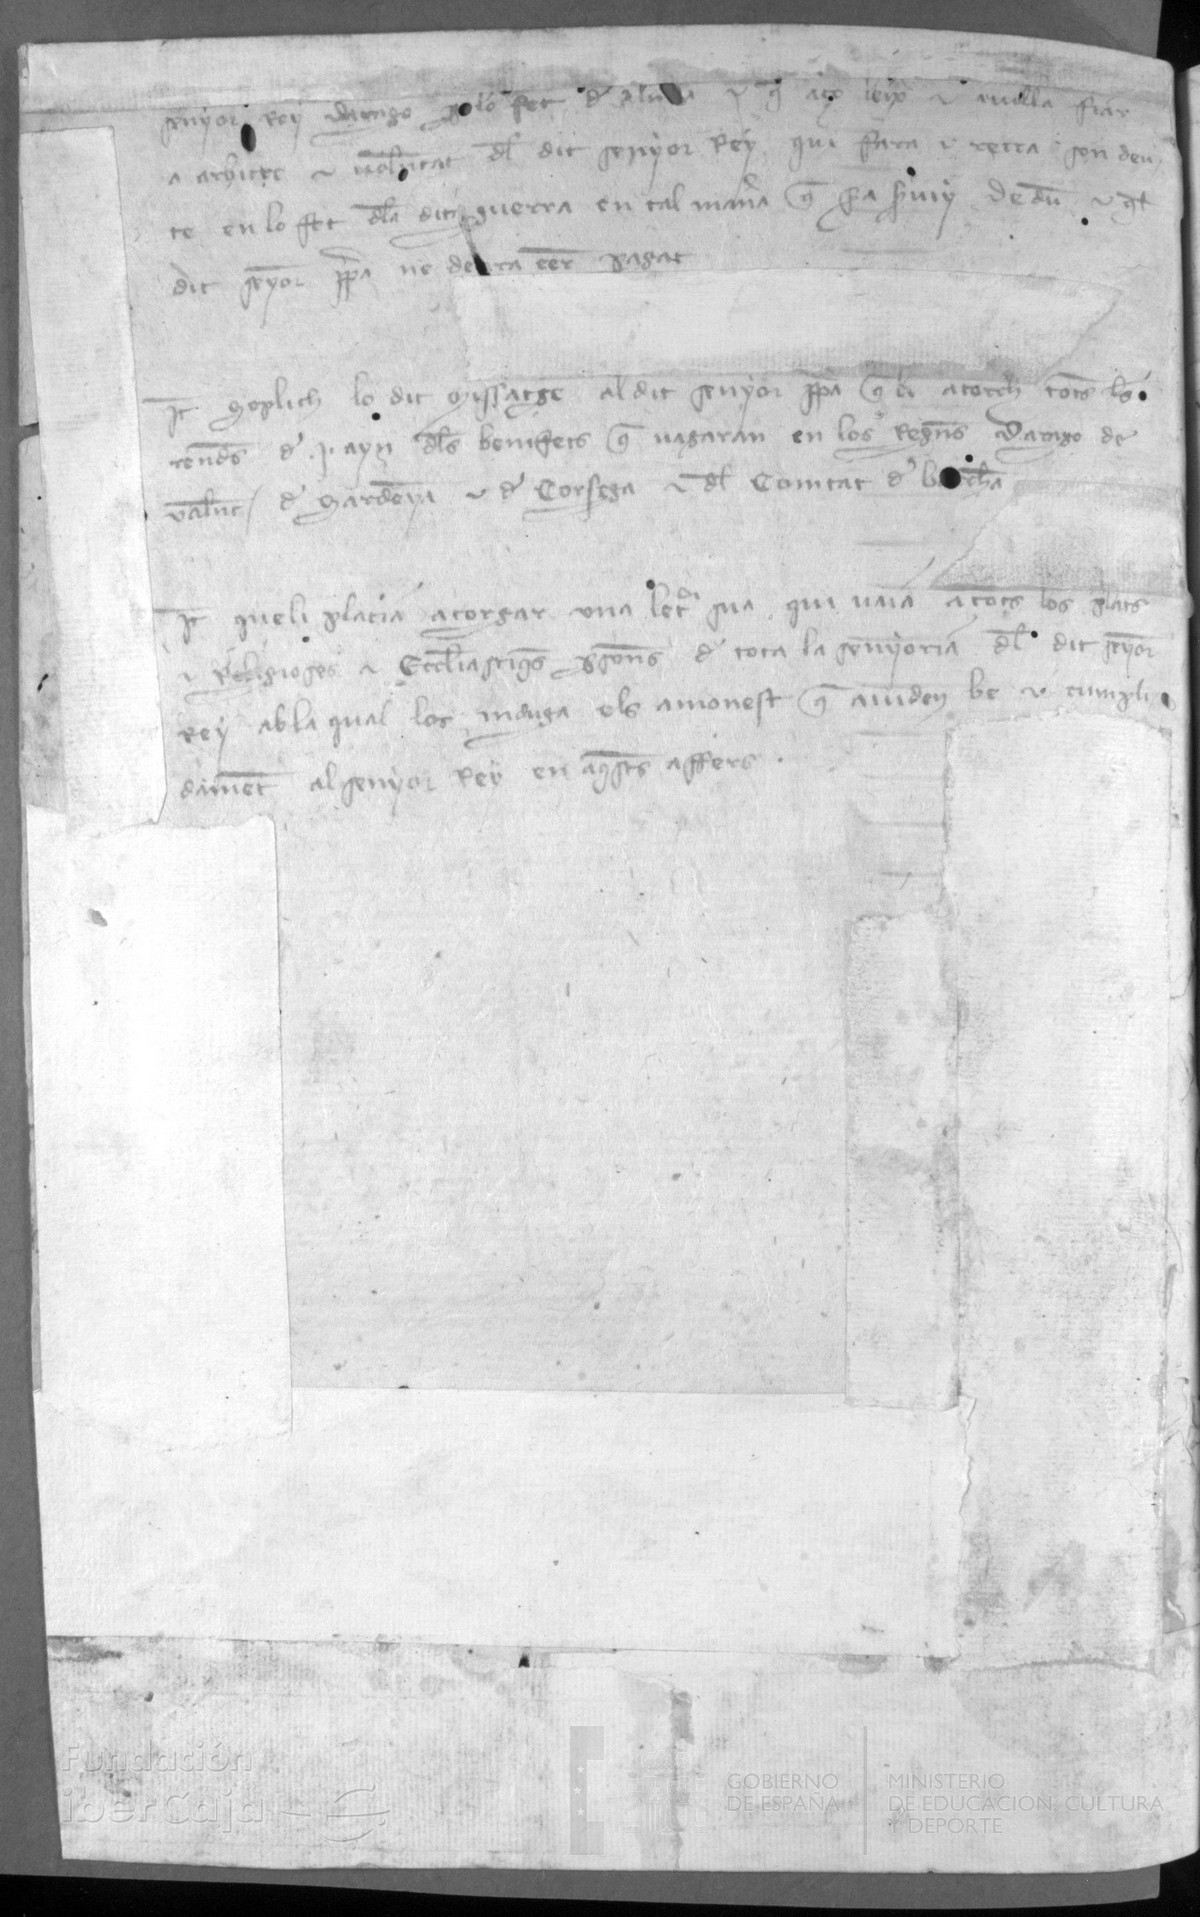 senyor Rey darago p lo fet de  ⁊ q̄ aço leix ⁊ vulla fiar
a arbitre ⁊ volūtat dl̄ dit senyor Rey qui fara ⁊ retra sen deu
te en lo fet dl̄a dita guerra en tal man̄a q̄ ⁊
dit seȳor pp̄a ne deura eēr pagat
It̄ soplich lo dit missatge al dit senyor pp̄a q̄ li atorch tots ls̄
rends̄ de .j. ayn dl̄s benifets q̄ vagaran en los Regn̄s Darago de
valn̄c / de Sardeȳa ⁊ de Corsega ⁊ dl̄ Comtat de barch̄a
It̄ que li placia atorgar una letra sua qui vaia a tots los plats
⁊ Religioses ⁊ Eccl̄iastiqs̄ psons̄ de tota la senyoria dl̄ dit seȳor
Rey ab la qual los induga els amonest q̄ aiuden be ⁊ cumpli
damēt al senyor Rey en aqsts̄ affers .
Fundación
iberCaja
GOBIERNO
DE ESPAÑA
MINISTERIO
DE EDUCACIÓN, CULTURA
Y DEPORTE